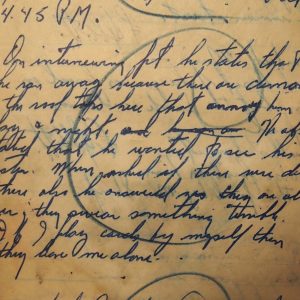 4.45 P.M.
On interviewing pt. he states that
he ran away because there are demons
the roof this here that annoy him
at night. and
that he wanted to see his
When asked if there were de
there also he answered yes they are al
over; they swear something terrible
If I play cards by myself then
they leave me alone.